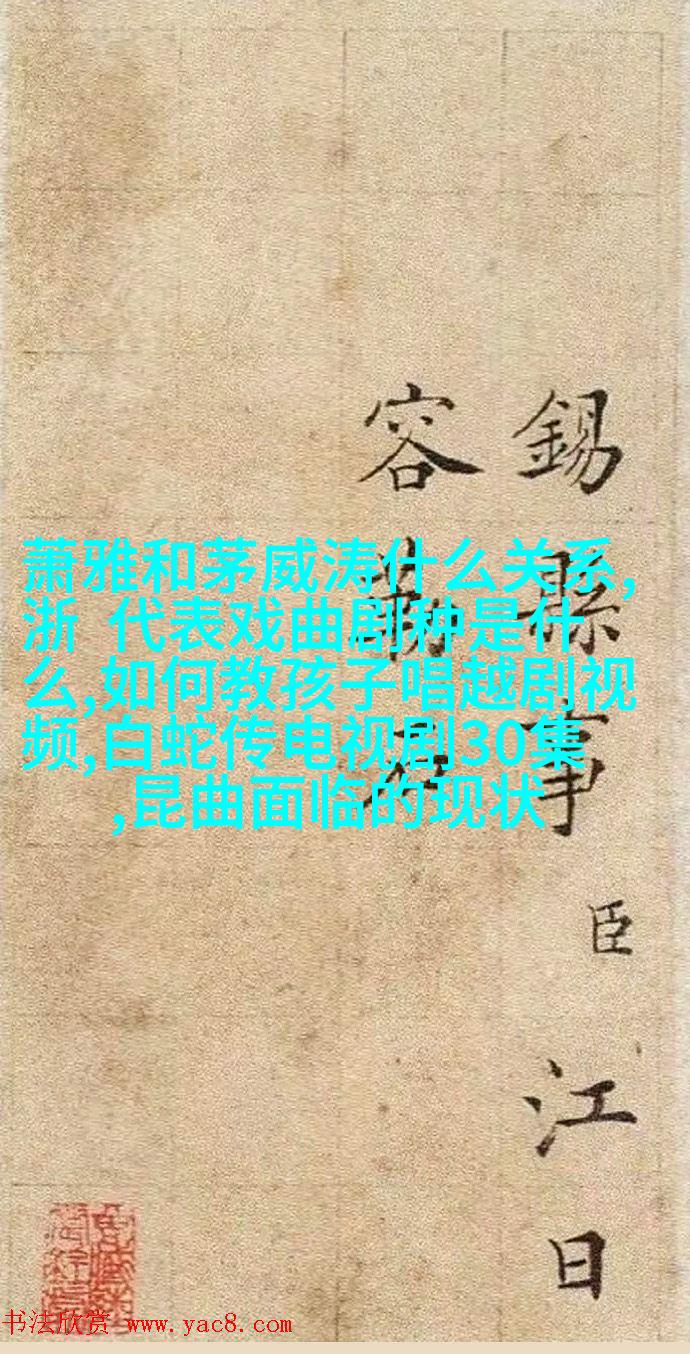 萧雅和茅威涛什么关系,
浙 代表戏曲剧种是什
么,如何教孩子唱越剧视
频,白蛇传电视剧30集
,昆曲面临的现状
錫縣事臣江日
容
书法欣赏 www.yac8.com